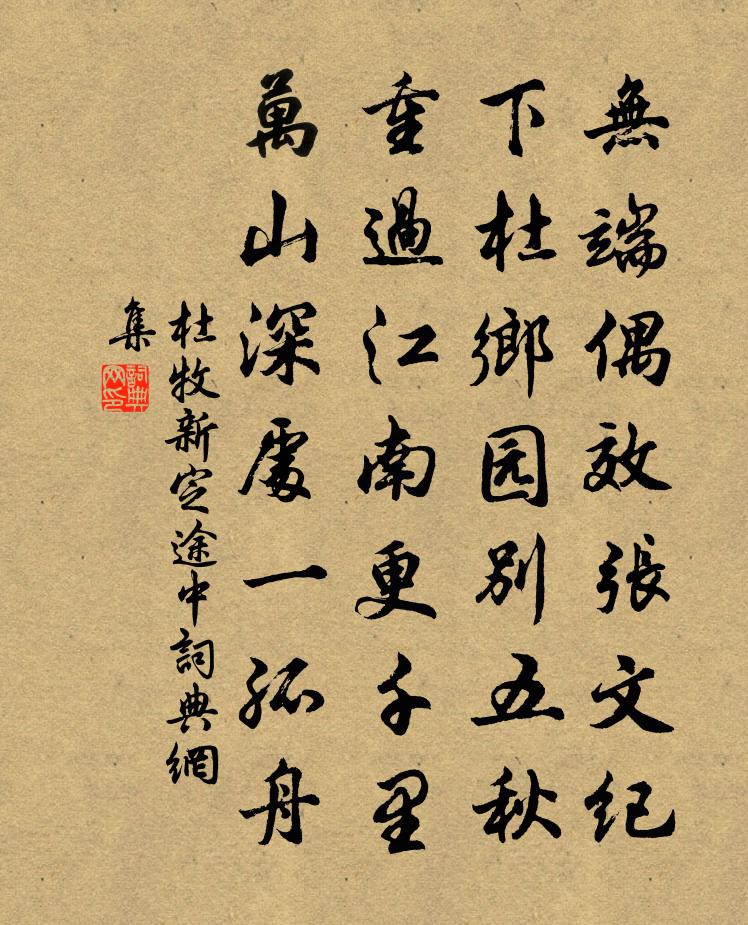 無端偶效張文紀
下杜鄉园別五秋
重過江南更千里
萬山深處一孤舟
杜牧新定途中詞典網
集
詞典
网印